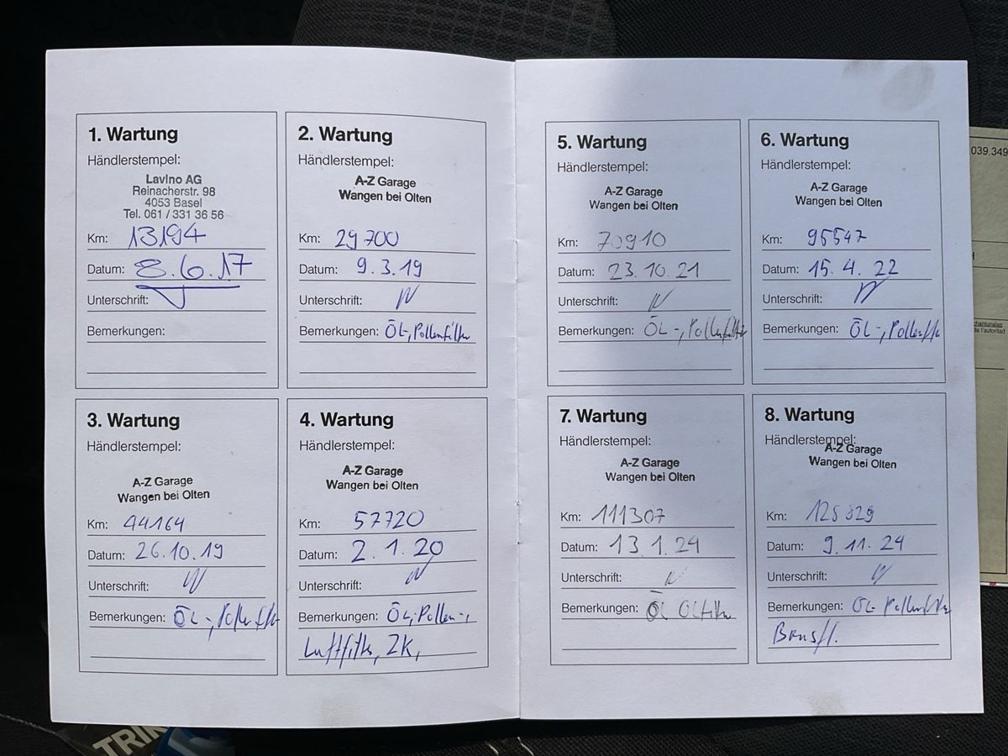 1. Wartung
Händlerstempel:
Lavino AG
Reinacherstr. 98
4053 Basel
Tel. 061 / 331 36 56
Km: 13194
Datum: 8.6.17
Unterschrift:
Bemerkungen:
2. Wartung
Händlerstempel:
A-Z Garage
Wangen bei Olten
Km: 29700
Datum: 9.3.19
Unterschrift:
Bemerkungen: ÖL-, Pollenfilter
3. Wartung
Händlerstempel:
A-Z Garage
Wangen bei Olten
Km: 44164
Datum: 26.10.19
Unterschrift:
Bemerkungen: ÖL-, Pollenfilter
4. Wartung
Händlerstempel:
A-Z Garage
Wangen bei Olten
Km: 57720
Datum: 2.1.20
Unterschrift:
Bemerkungen: ÖL-, Pollen-,
Luftfilter, ZK,
5. Wartung
Händlerstempel:
A-Z Garage
Wangen bei Olten
Km: 70910
Datum: 23.10.21
Unterschrift:
Bemerkungen: ÖL-, Pollenfilter
6. Wartung
Händlerstempel:
A-Z Garage
Wangen bei Olten
Km: 95547
Datum: 15.4.22
Unterschrift:
Bemerkungen: ÖL-, Pollenfilter
7. Wartung
Händlerstempel:
A-Z Garage
Wangen bei Olten
Km: 111307
Datum: 13.1.24
Unterschrift:
Bemerkungen: ÖL
8. Wartung
Händlerstempel:
A-Z Garage
Wangen bei Olten
Km:
Datum: 9.11.24
Unterschrift:
Bemerkungen: ÖL- Pollenfilter
Bremsfl.
039.349
TRI